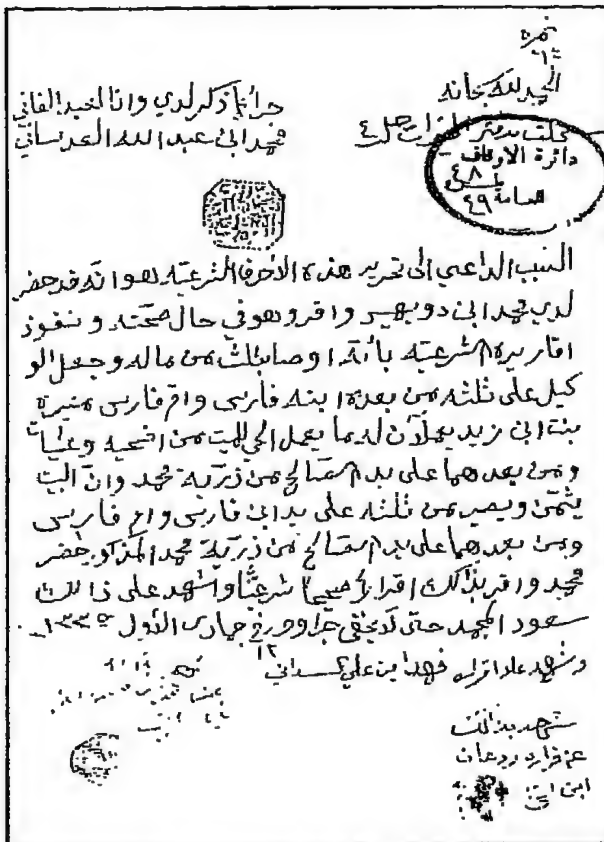 نمرة
الحمد لله سبحانه
جرا ما ذكر لدي وانا العبد الفاني
محمد ابن عبد الله العدساني
دائرة الاوقاف
٤٨
٤٩
السبب الداعي الى تحرير هذه الاحرف الشرعيه هو انه قد حضر
لدي محمد ابن دويهيس واقر وهو في حال صحته ونفوذ
اقاريره الشرعيه بأنه اوصا بثلث من ماله وجعل الو
كيل على ثلثه من بعده ابنه فارس وام فارس منيره
بنت ابن زيد يعملان له ما يعمل الحي للميت من اضحيه وعشيات
ومن بعدهما على يد الصالح من ذرية محمد وان البيت
يثمن ويصير من ثلثه على يد ابن فارس وام فارس
ومن بعدهما على يد الصالح من ذرية محمد المذكور حضر
محمد واقر بذالك اقرارا صحيحا شرعيا واشهد على ذالك
سعود المحمد حتى لا يخفى جرا وحرر في ١٢ جمادى الاول ١٣٣٥
وشهد على اقراره فهد ابن علي
شهد بذالك
ابن